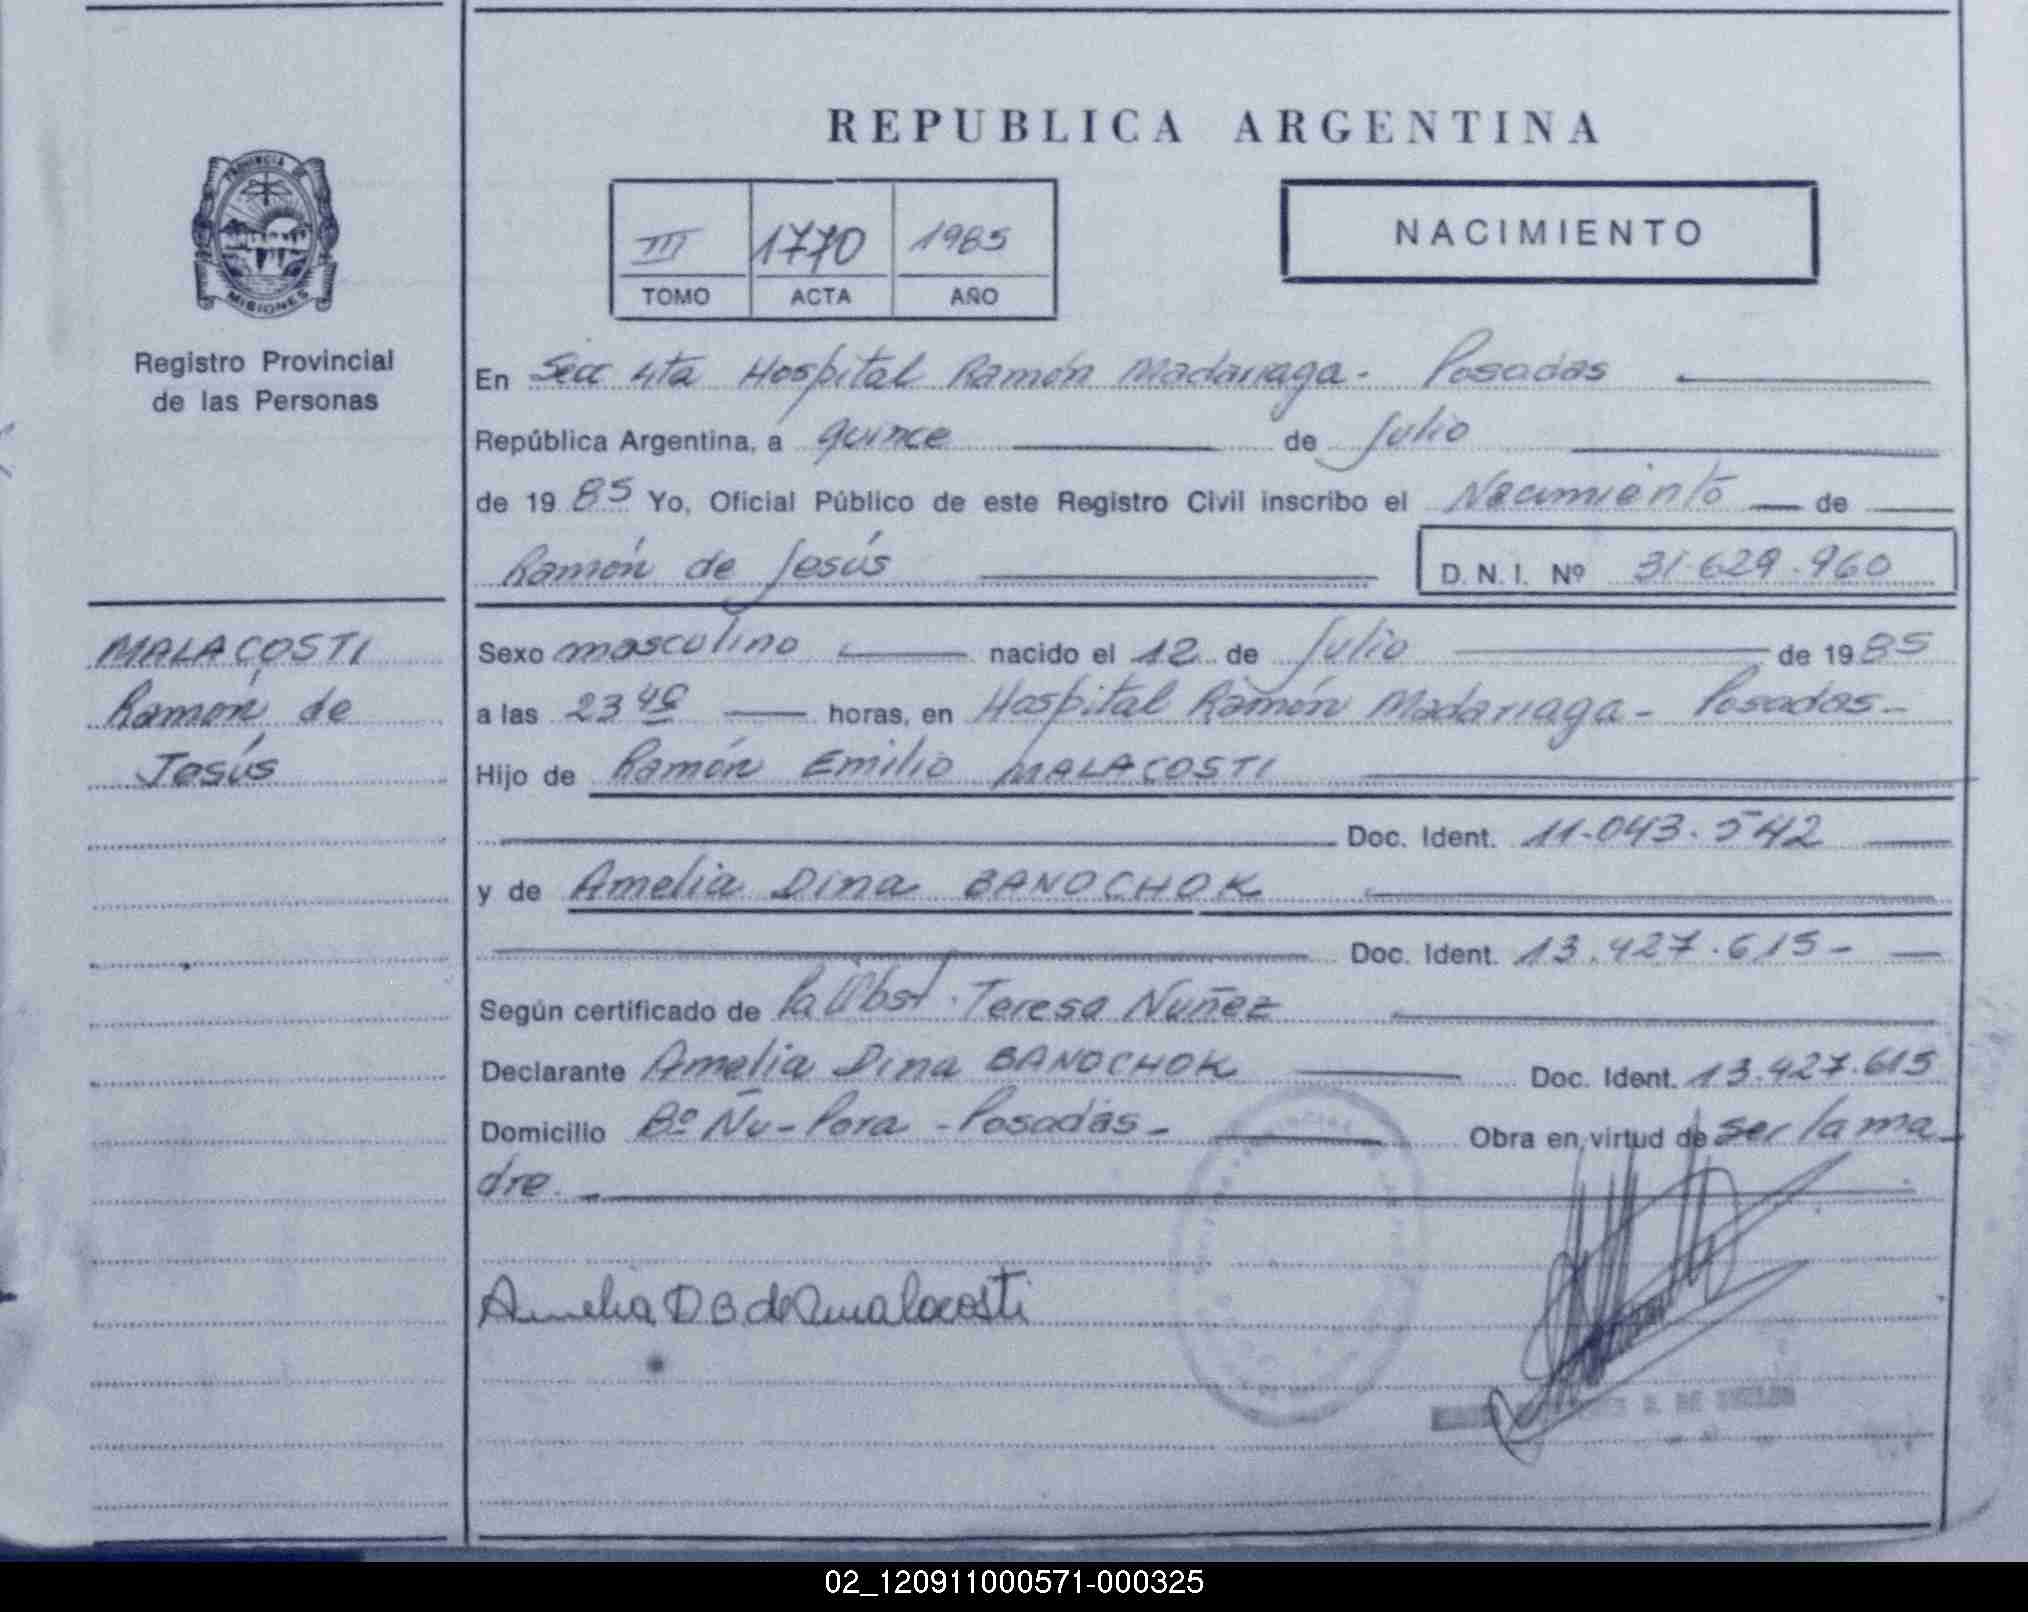 REPUBLICA ARGENTINA
PROVINCIA DE
MISIONES
Registro Provincial
de las Personas
III 1770 1985
TOMO ACTA AÑO
NACIMIENTO
En Secc 4ta Hospital Ramón Madariaga - Posadas
República Argentina, a quince de Julio
de 1985 Yo, Oficial Público de este Registro Civil inscribo el Nacimiento de
Ramón de Jesús D.N.I. Nº 31.629.960
MALACOSTI
Ramón de
Jesús
Sexo masculino nacido el 12 de Julio de 1985
a las 23 40 horas, en Hospital Ramón Madariaga - Posadas -
Hijo de Ramón Emilio MALACOSTI
Doc. Ident. 11.043.542
y de Amelia Dina BANOCHOK
Doc. Ident. 13.427.615 -
Según certificado de la Obst. Teresa Nuñez
Declarante Amelia Dina BANOCHOK Doc. Ident. 13.427.615
Domicilio Bº Ñu-Pora - Posadas - Obra en virtud de ser la ma
dre.
Amelia D B de Malacosti
02_120911000571-000325